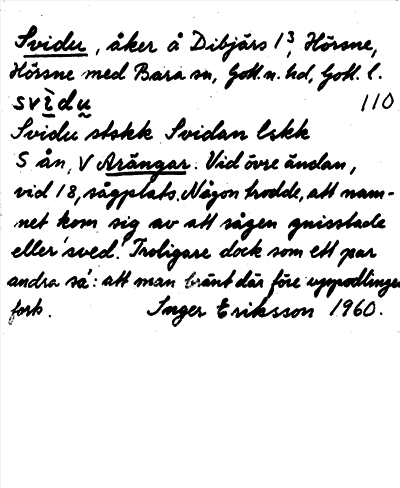 Svidu, åker å Dibjärs 1³, Hörsne,
Hörsne med Bara sn, Gotl. n. hd, Gotl. l.
svìdu̯ 110
Svidu stskk Svidan lskk
S ån, V Arängar. Vid övre ändan,
vid 18, sågplats. Någon trodde, att nam-
net kom sig av att sågen gnisslade
eller 'sved'. Troligare dock som ett par
andra sa': att man bränt där före uppodlingen
forts. Inger Eriksson 1960.